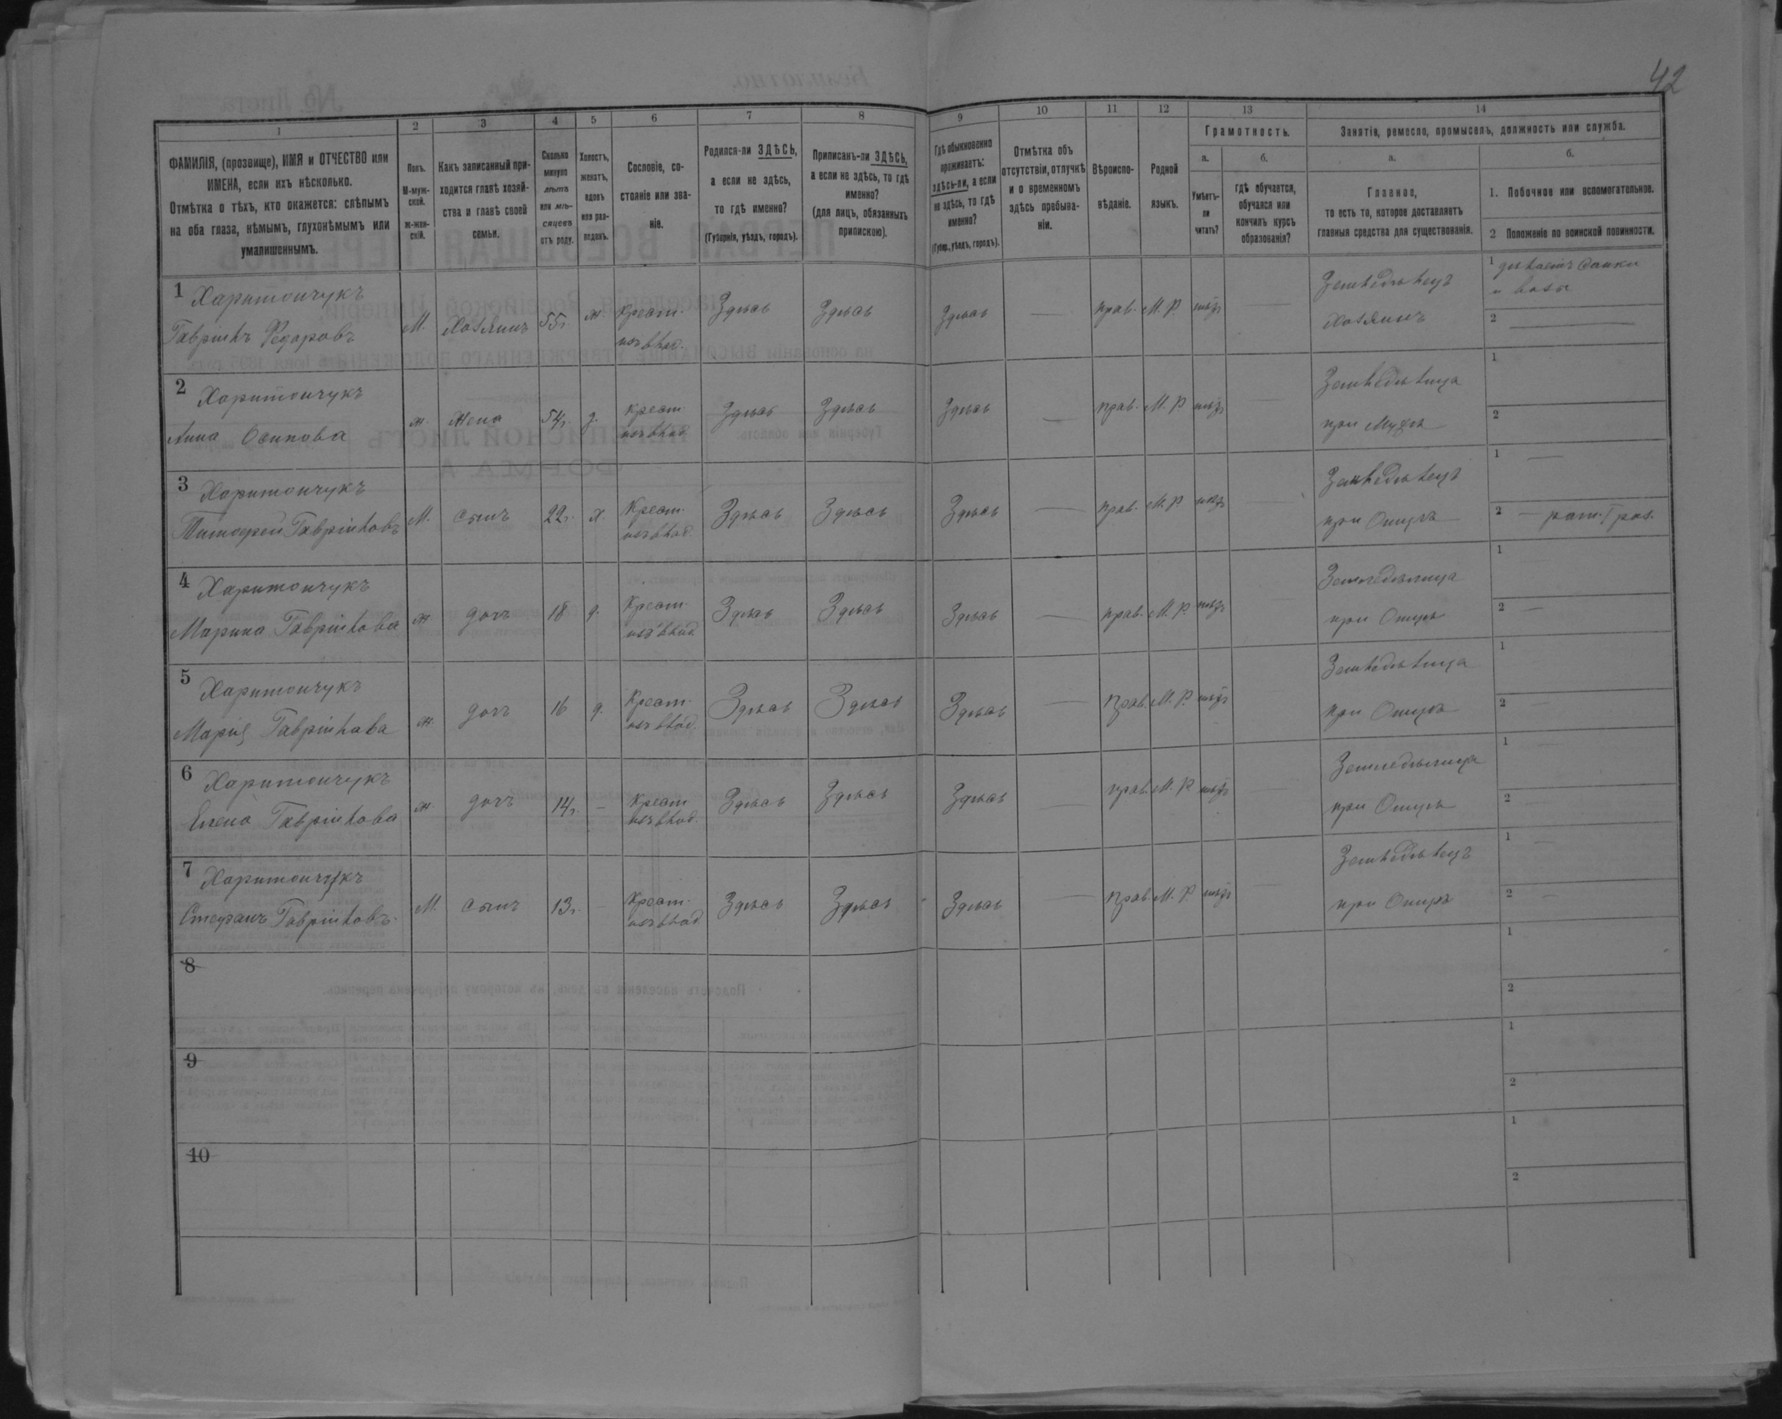 42
1 2 3 4 5 6 7 8 9 10 11 12 13 14
ФАМИЛІЯ, (прозвище), ИМЯ и ОТЧЕСТВО или
ИМЕНА, если ихъ нѣсколько.
Отмѣтка о тѣхъ, кто окажется: слѣпымъ
на оба глаза, нѣмымъ, глухонѣмымъ или
умалишеннымъ.
Полъ.
М-муж-
ской.
ж-жен-
скій.
Какъ записанный при-
ходится главѣ хозяй-
ства и главѣ своей
семьи.
Сколько
минуло
лѣтъ
или мѣ-
сяцевъ
отъ роду.
Холостъ,
женатъ,
вдовъ
или раз-
веденъ.
Сословіе, со-
стояніе или зва-
ніе.
Родился-ли ЗДѢСЬ,
а если не здѣсь,
то гдѣ именно?
(Губернія, уѣздъ, городъ).
Приписанъ-ли ЗДѢСЬ,
а если не здѣсь, то гдѣ
именно?
(для лицъ, обязанныхъ
припискою).
Гдѣ обыкновенно
проживаетъ:
здѣсь-ли, а если
не здѣсь, то гдѣ
именно?
(Губер., уѣздъ, городъ).
Отмѣтка объ
отсутствіи, отлучкѣ
и о временномъ
здѣсь пребыва-
ніи.
Вѣроиспо-
вѣданіе.
Родной
языкъ.
Грамотность.
а.
Умѣетъ-
ли
читать?
б.
гдѣ обучается,
обучался или
кончилъ курсъ
образованія?
Занятіе, ремесло, промыселъ, должность или служба.
а.
Главное,
то есть то, которое доставляетъ
главныя средства для существованія.
б.
1. Побочное или вспомогательное.
2 Положеніе по воинской повинности.
1 Харитончукъ
Гавріилъ Федоровъ
М. Хозяинъ 55 г. ж Крест. Здѣсь Здѣсь Здѣсь — прав. М. Р — Земледѣлецъ
хозяинъ
1
2 —
2 Харитончукъ
Анна Осипова
ж Жена 54 г. з. Крест Здѣсь Здѣсь Здѣсь — прав. М. Р — Земледѣлица
при Мужѣ
1
2
3 Харитончукъ
Тимофей Гавріиловъ
М. сынъ 22 г. х. Крест. Здѣсь Здѣсь Здѣсь — прав. М. Р — Земледѣлецъ
при Отцѣ
1 —
2 — рат. I раз.
4 Харитончукъ
Марина Гавріилова
ж. дочь 18 д. Крест. Здѣсь Здѣсь Здѣсь — прав. М. Р. — Земледѣлица
при Отцѣ
1
2 —
5 Харитончукъ
Марія Гавріилова
ж. дочь 16 д. Крест. Здѣсь Здѣсь Здѣсь — Прав. М. Р. — Земледѣлица
при Отцѣ
1
2 —
6 Харитончукъ
Елена Гавріилова
ж дочь 14 г. — Крест Здѣсь Здѣсь Здѣсь — прав. М. Р — Земледѣлица
при Отцѣ
1 —
2 —
7 Харитончукъ
Стефанъ Гавріиловъ
М. сынъ 13 г. — Крест. Здѣсь Здѣсь Здѣсь — Прав. М. Р — Земледѣлецъ
при Отцѣ
1 —
2 —
8
1
2
9
1
2
10
1
2